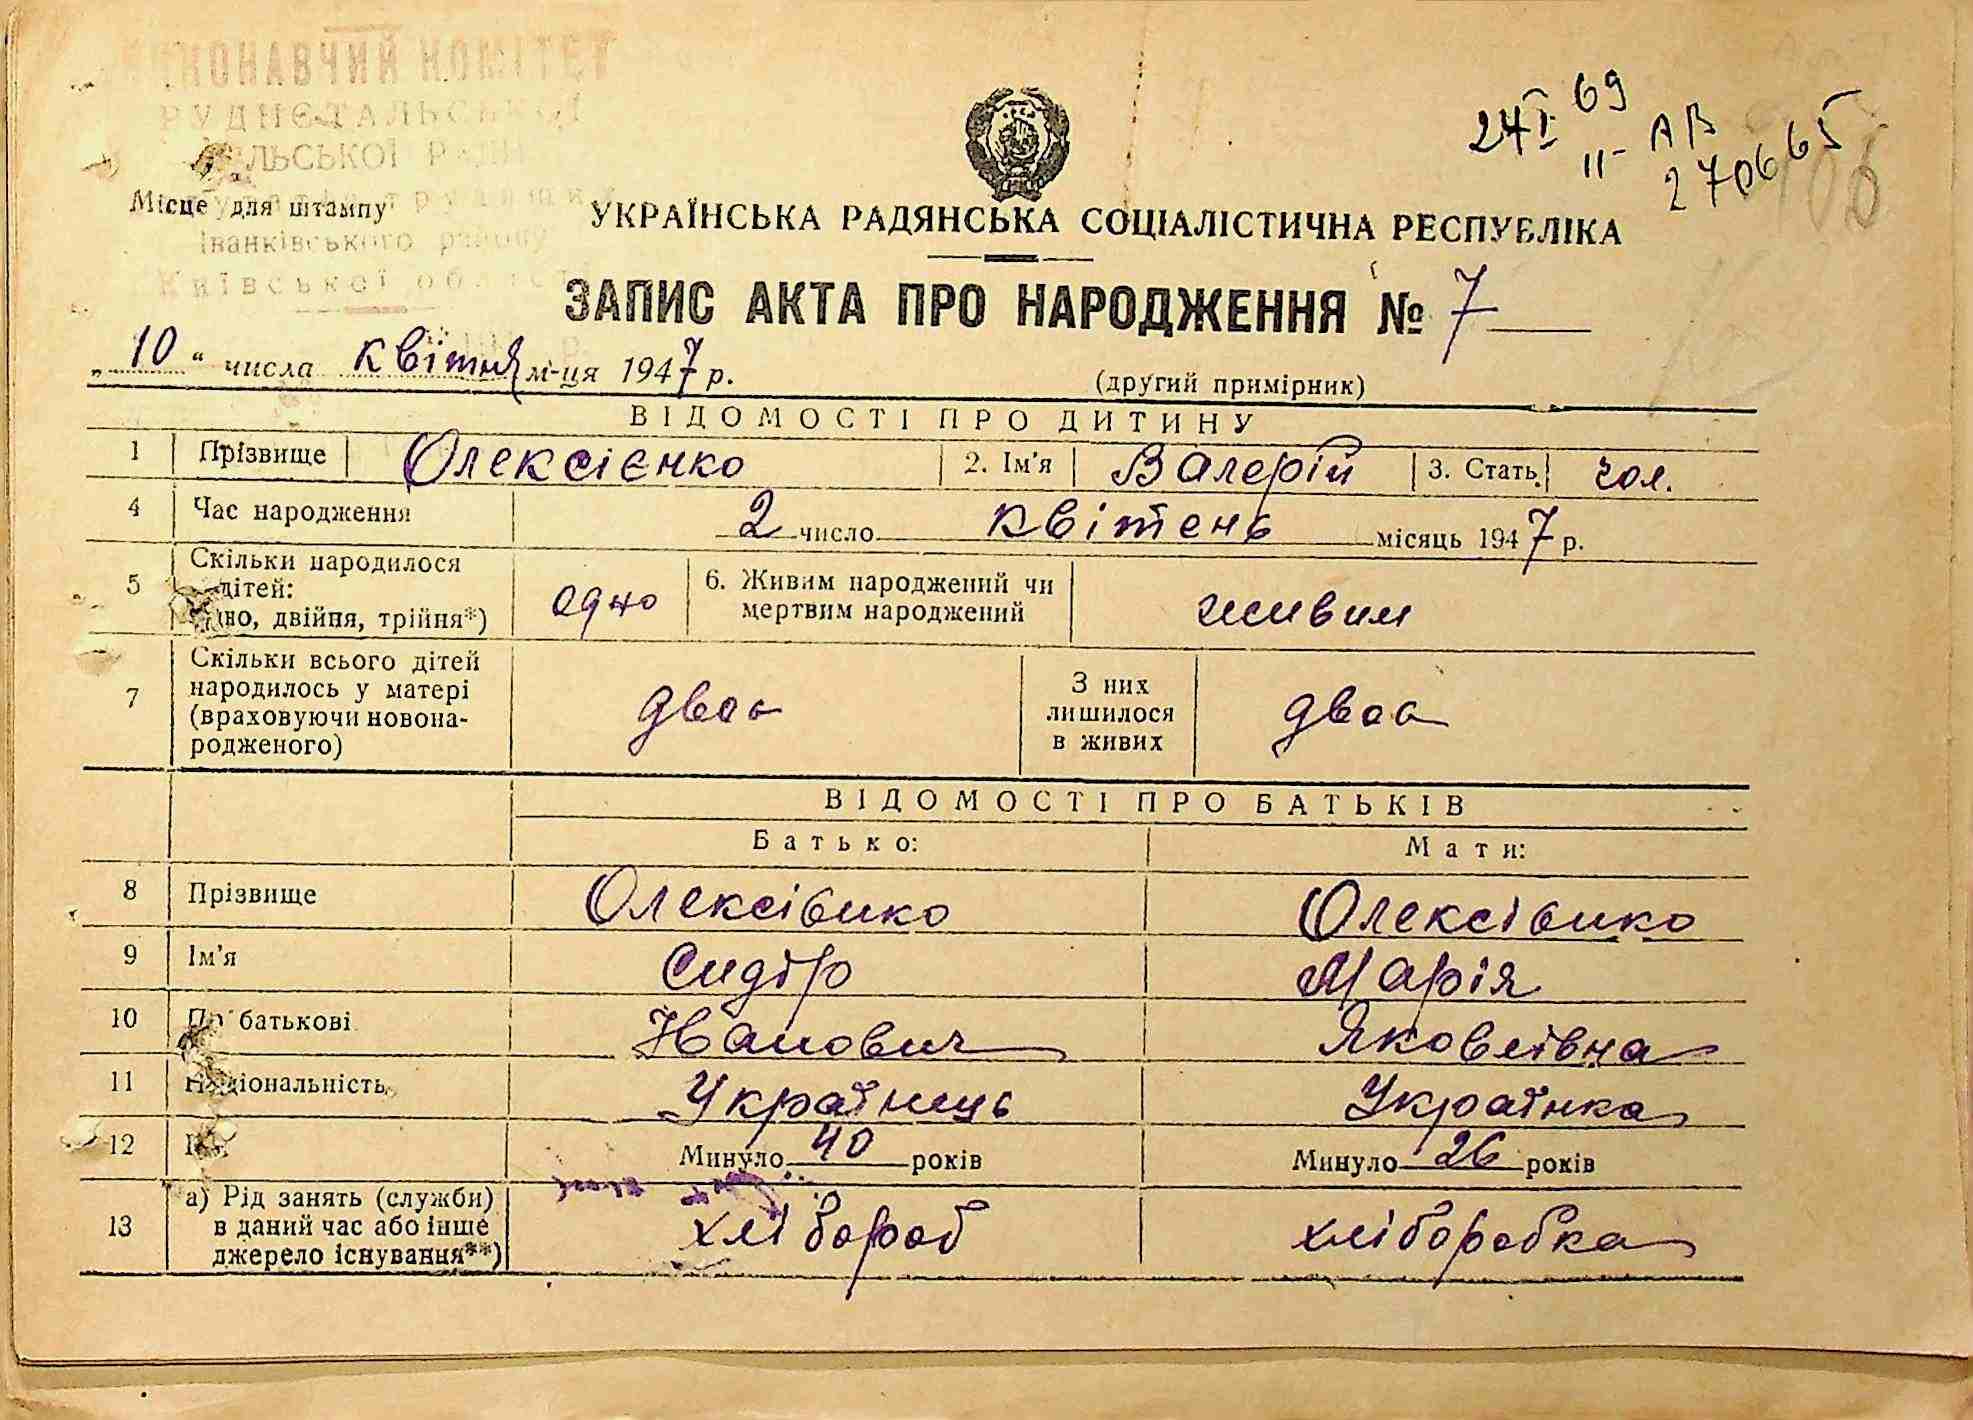 ВИКОНАВЧИЙ КОМІТЕТ
РУДНЄТАЛЬСЬКОЇ
СІЛЬСЬКОЇ РАДИ
Іванківського району
Київської області
Місце для штампу
24 I 69
II-АВ
270665
УКРАЇНСЬКА РАДЯНСЬКА СОЦІАЛІСТИЧНА РЕСПУБЛІКА
ЗАПИС АКТА ПРО НАРОДЖЕННЯ № 7
„10“ числа квітня м-ця 1947 р.
(другий примірник)
ВІДОМОСТІ ПРО ДИТИНУ
1 Прізвище Олексієнко 2. Ім'я Валерій 3. Стать чол.
4 Час народження 2 число квітень місяць 1947 р.
5 Скільки народилося дітей: одно, двійня, трійня*) одно 6. Живим народжений чи мертвим народжений живим
7 Скільки всього дітей народилось у матері (враховуючи новонародженого) двоє З них лишилося в живих двоє
ВІДОМОСТІ ПРО БАТЬКІВ
Батько: Мати:
8 Прізвище Олексієнко Олексієнко
9 Ім'я Сидір Марія
10 По батькові Іванович Яковлівна
11 Національність Українець Українка
12 Вік Минуло 40 років Минуло 26 років
13 а) Рід занять (служби) в даний час або інше джерело існування**) хлібороб хліборобка